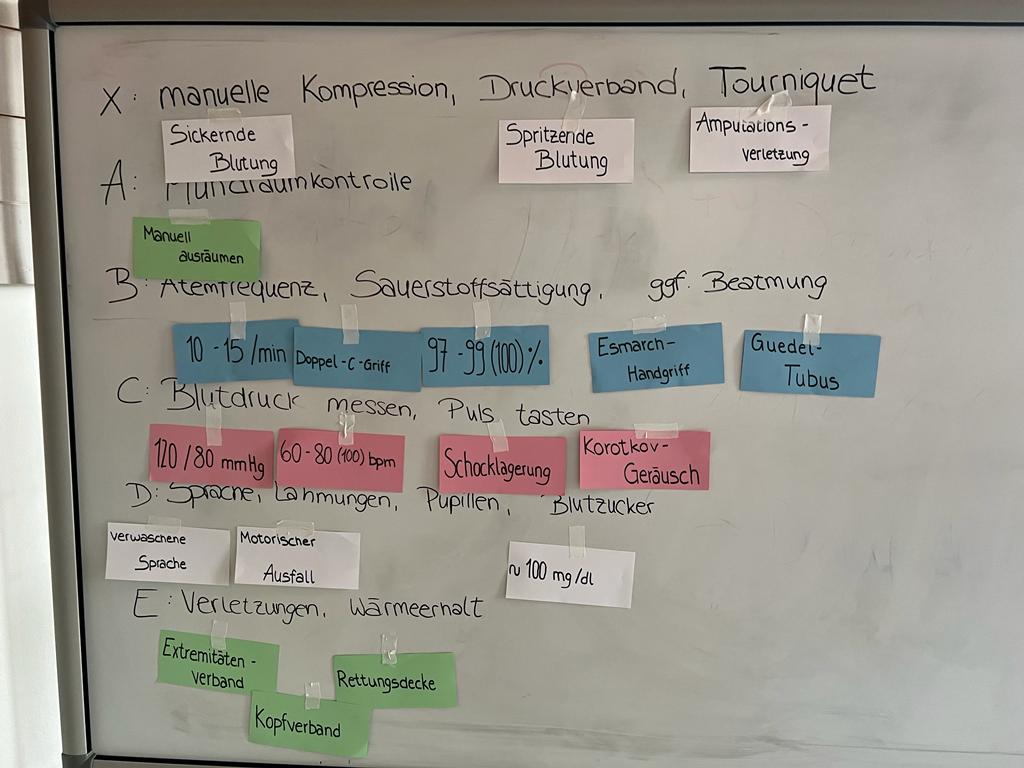 X: manuelle Kompression, Druckverband, Tourniquet
Sickernde
Blutung
Spritzende
Blutung
Amputations-
verletzung
A: Mundraumkontrolle
Manuell
ausräumen
B: Atemfrequenz, Sauerstoffsättigung, ggf. Beatmung
10 - 15 /min
Doppel-C-Griff
97 - 99 (100) %
Esmarch-
Handgriff
Guedel-
Tubus
C: Blutdruck messen, Puls tasten
120 / 80 mmHg
60 - 80 (100) bpm
Schocklagerung
Korotkov-
Geräusch
D: Sprache, Lähmungen, Pupillen, Blutzucker
verwaschene
Sprache
Motorischer
Ausfall
~ 100 mg/dl
E: Verletzungen, Wärmeerhalt
Extremitäten-
verband
Rettungsdecke
Kopfverband